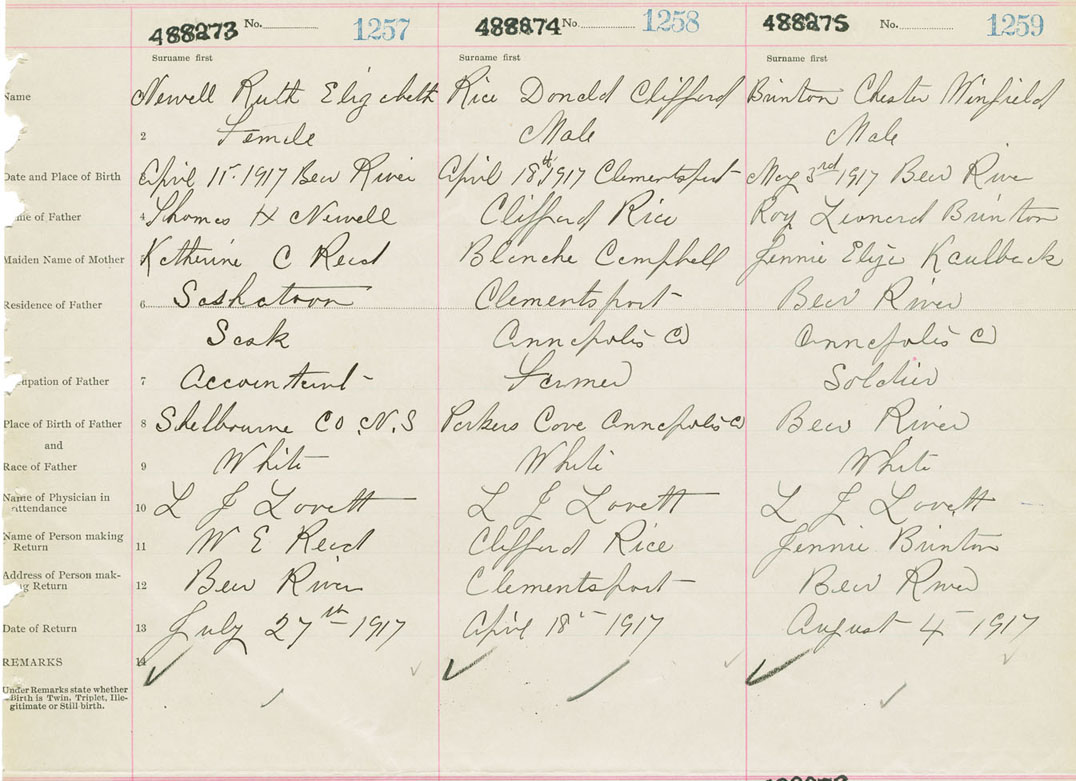 488273 No. 1257 488274 No. 1258 488275 No. 1259
Surname first Surname first Surname first
Name Newell Ruth Elizabeth Rice Donald Clifford Brinton Chester Winfield
2 Female Male Male
Date and Place of Birth 3 April 11th 1917 Bear River April 18th 1917 Clementsport May 3rd 1917 Bear River
me of Father 4 Thomas H Newell Clifford Rice Roy Leonard Brinton
Maiden Name of Mother Katherine C Reed Blanche Campbell Jennie Eliza Kaulback
Residence of Father 6 Saskatoon Clementsport Bear River
Sask Annapolis Co Annapolis Co
upation of Father 7 Accountant Farmer Soldier
Place of Birth of Father 8 Shelbourne Co. N.S Parkers Cove Annapolis Co Bear River
and
Race of Father 9 White White White
Name of Physician in
Attendance 10 L J Lovett L J Lovett L J Lovett
Name of Person making
Return 11 W E Reed Clifford Rice Jennie Brinton
Address of Person mak-
ng Return 12 Bear River Clementsport Bear River
Date of Return 13 July 27th 1917 April 18th 1917 August 4 1917
REMARKS 14
Under Remarks state whether
Birth is Twin, Triplet, Ille-
gitimate or Still birth.